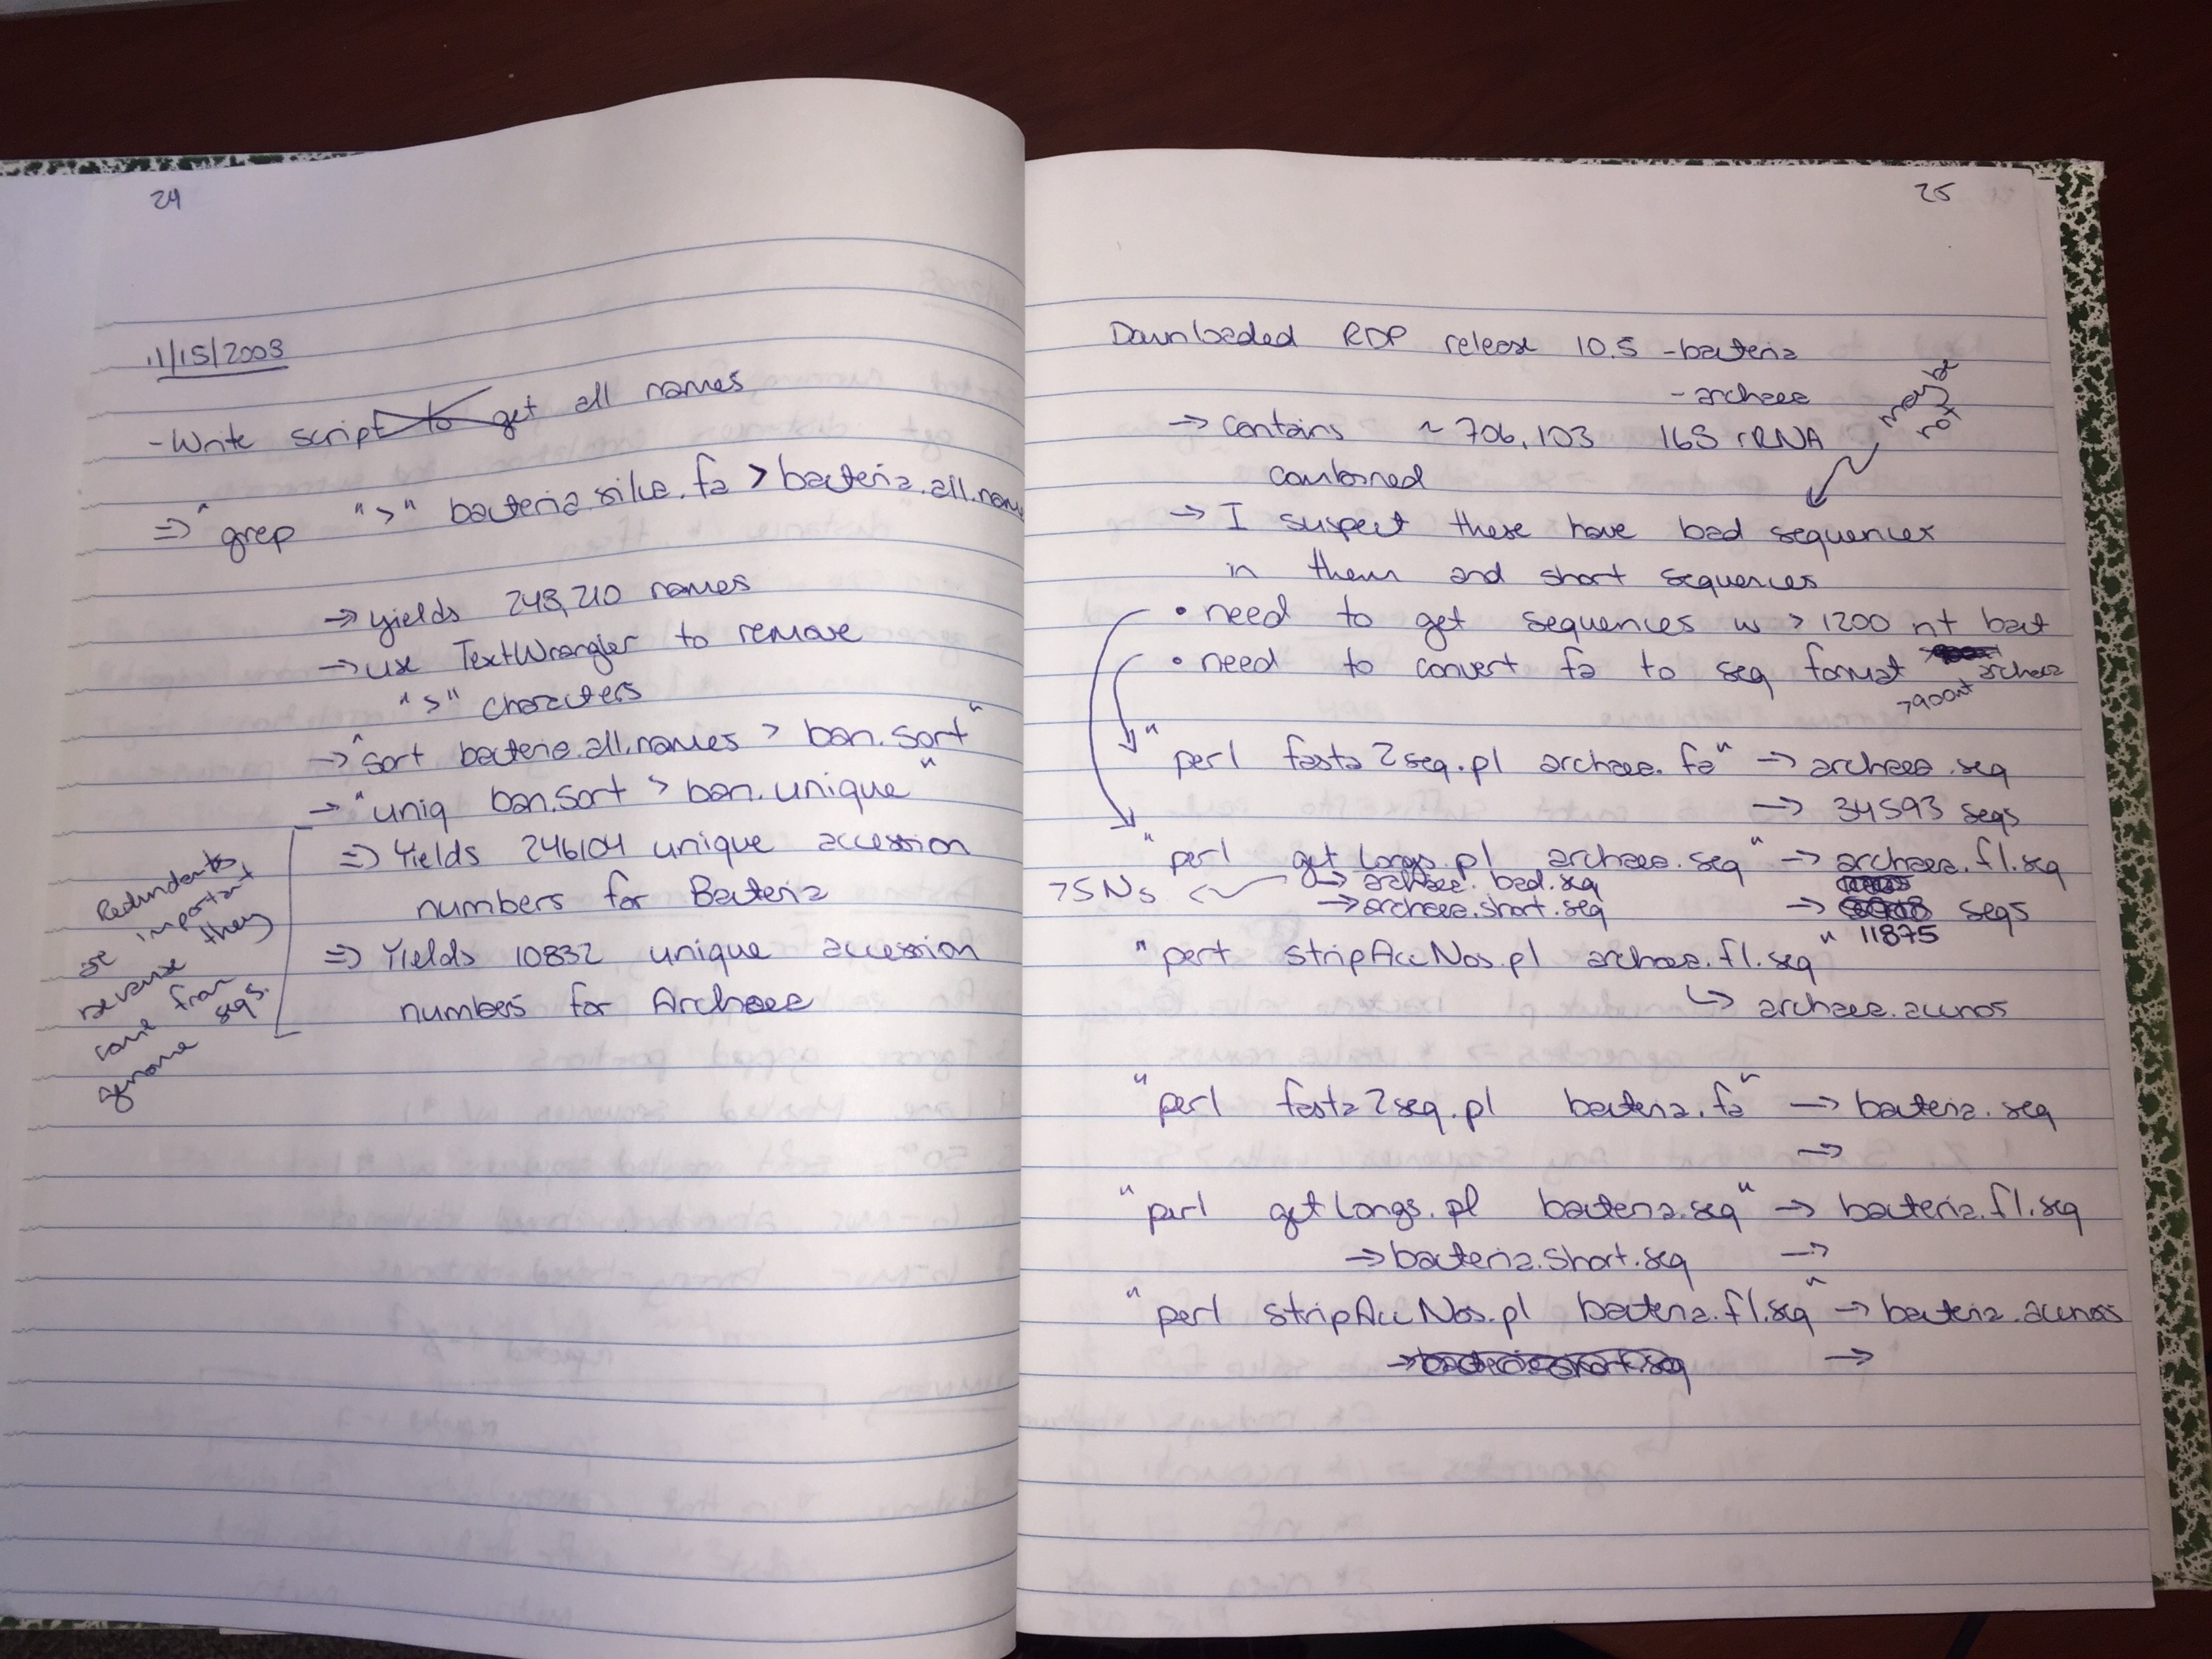 24
11/15/2003
- Write script to get all names
⇒ "grep ">" bacteria.silva.fa > bacteria.all.name
→ yields 248,210 names
→ use TextWrangler to remove
">" characters
→ "sort bacteria.all.names > ban.sort"
→ "uniq ban.sort > ban.unique"
⇒ Yields 246104 unique accession
numbers for Bacteria
⇒ Yields 10832 unique accession
numbers for Archaea
Redundants
are important
because they
came from
genome seqs.
25
Downloaded RDP release 10.5 - bacteria
- archaea
→ contains ~706,103 16S rRNA
combined
maybe
not
→ I suspect these have bad sequences
in them and short sequences
• need to get sequences w > 1200 nt bact
• need to convert fa to seq format archaea
>900nt
"perl fasta2seq.pl archaea.fa" → archaea.seq
→ 34593 seqs
"perl getLongs.pl archaea.seq" → archaea.fl.seq
75Ns → archaea.bad.seq
→ archaea.short.seq → seqs
11875
"perl stripAccNos.pl archaea.fl.seq"
↳ archaea.accnos
"perl fasta2seq.pl bacteria.fa" → bacteria.seq
→
"perl getLongs.pl bacteria.seq" → bacteria.fl.seq
→ bacteria.short.seq →
"perl stripAccNos.pl bacteria.fl.seq" → bacteria.accnos
→ bacteria.short.seq →